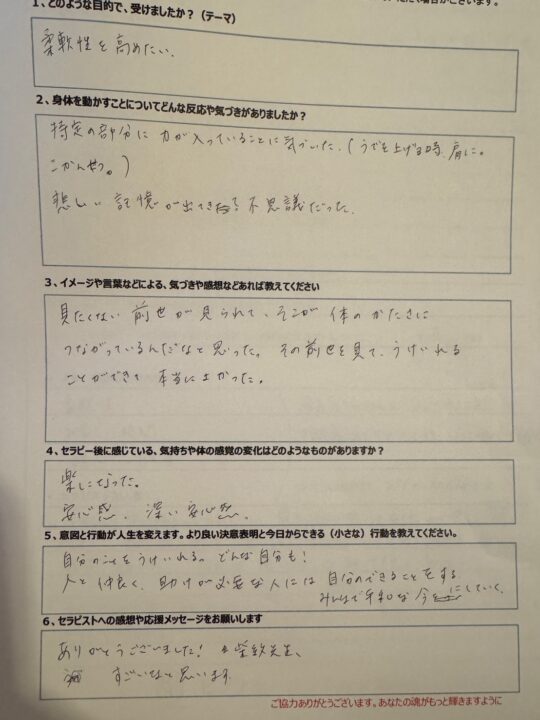 1、どのような目的で、受けましたか？（テーマ）
柔軟性を高めたい.
2、身体を動かすことについてどんな反応や気づきがありましたか？
特定の部分に力が入っていることに気づいた.(うでを上げる時、肩に。
こかんせつ。)
悲しい記憶が出てきた 不思議だった.
3、イメージや言葉などによる、気づきや感想などあれば教えてください
見たくない前世が見られて、そこが体のかたさに
つながっているんだなと思った。その前世を見て、うけいれる
ことができて本当によかった。
4、セラピー後に感じている、気持ちや体の感覚の変化はどのようなものがありますか？
楽になった。
安心感. 深い安心感.
5、意図と行動が人生を変えます。より良い決意表明と今日からできる（小さな）行動を教えてください。
自分のことをうけいれる。どんな自分も!
人と仲良く、助けが必要な人には自分のできることをする.
みんなで平和な今にしていく.
6、セラピストへの感想や応援メッセージをお願いします
ありがとうございました! 先生、
すごいなと思います.
ご協力ありがとうございます。あなたの魂がもっと輝きますように